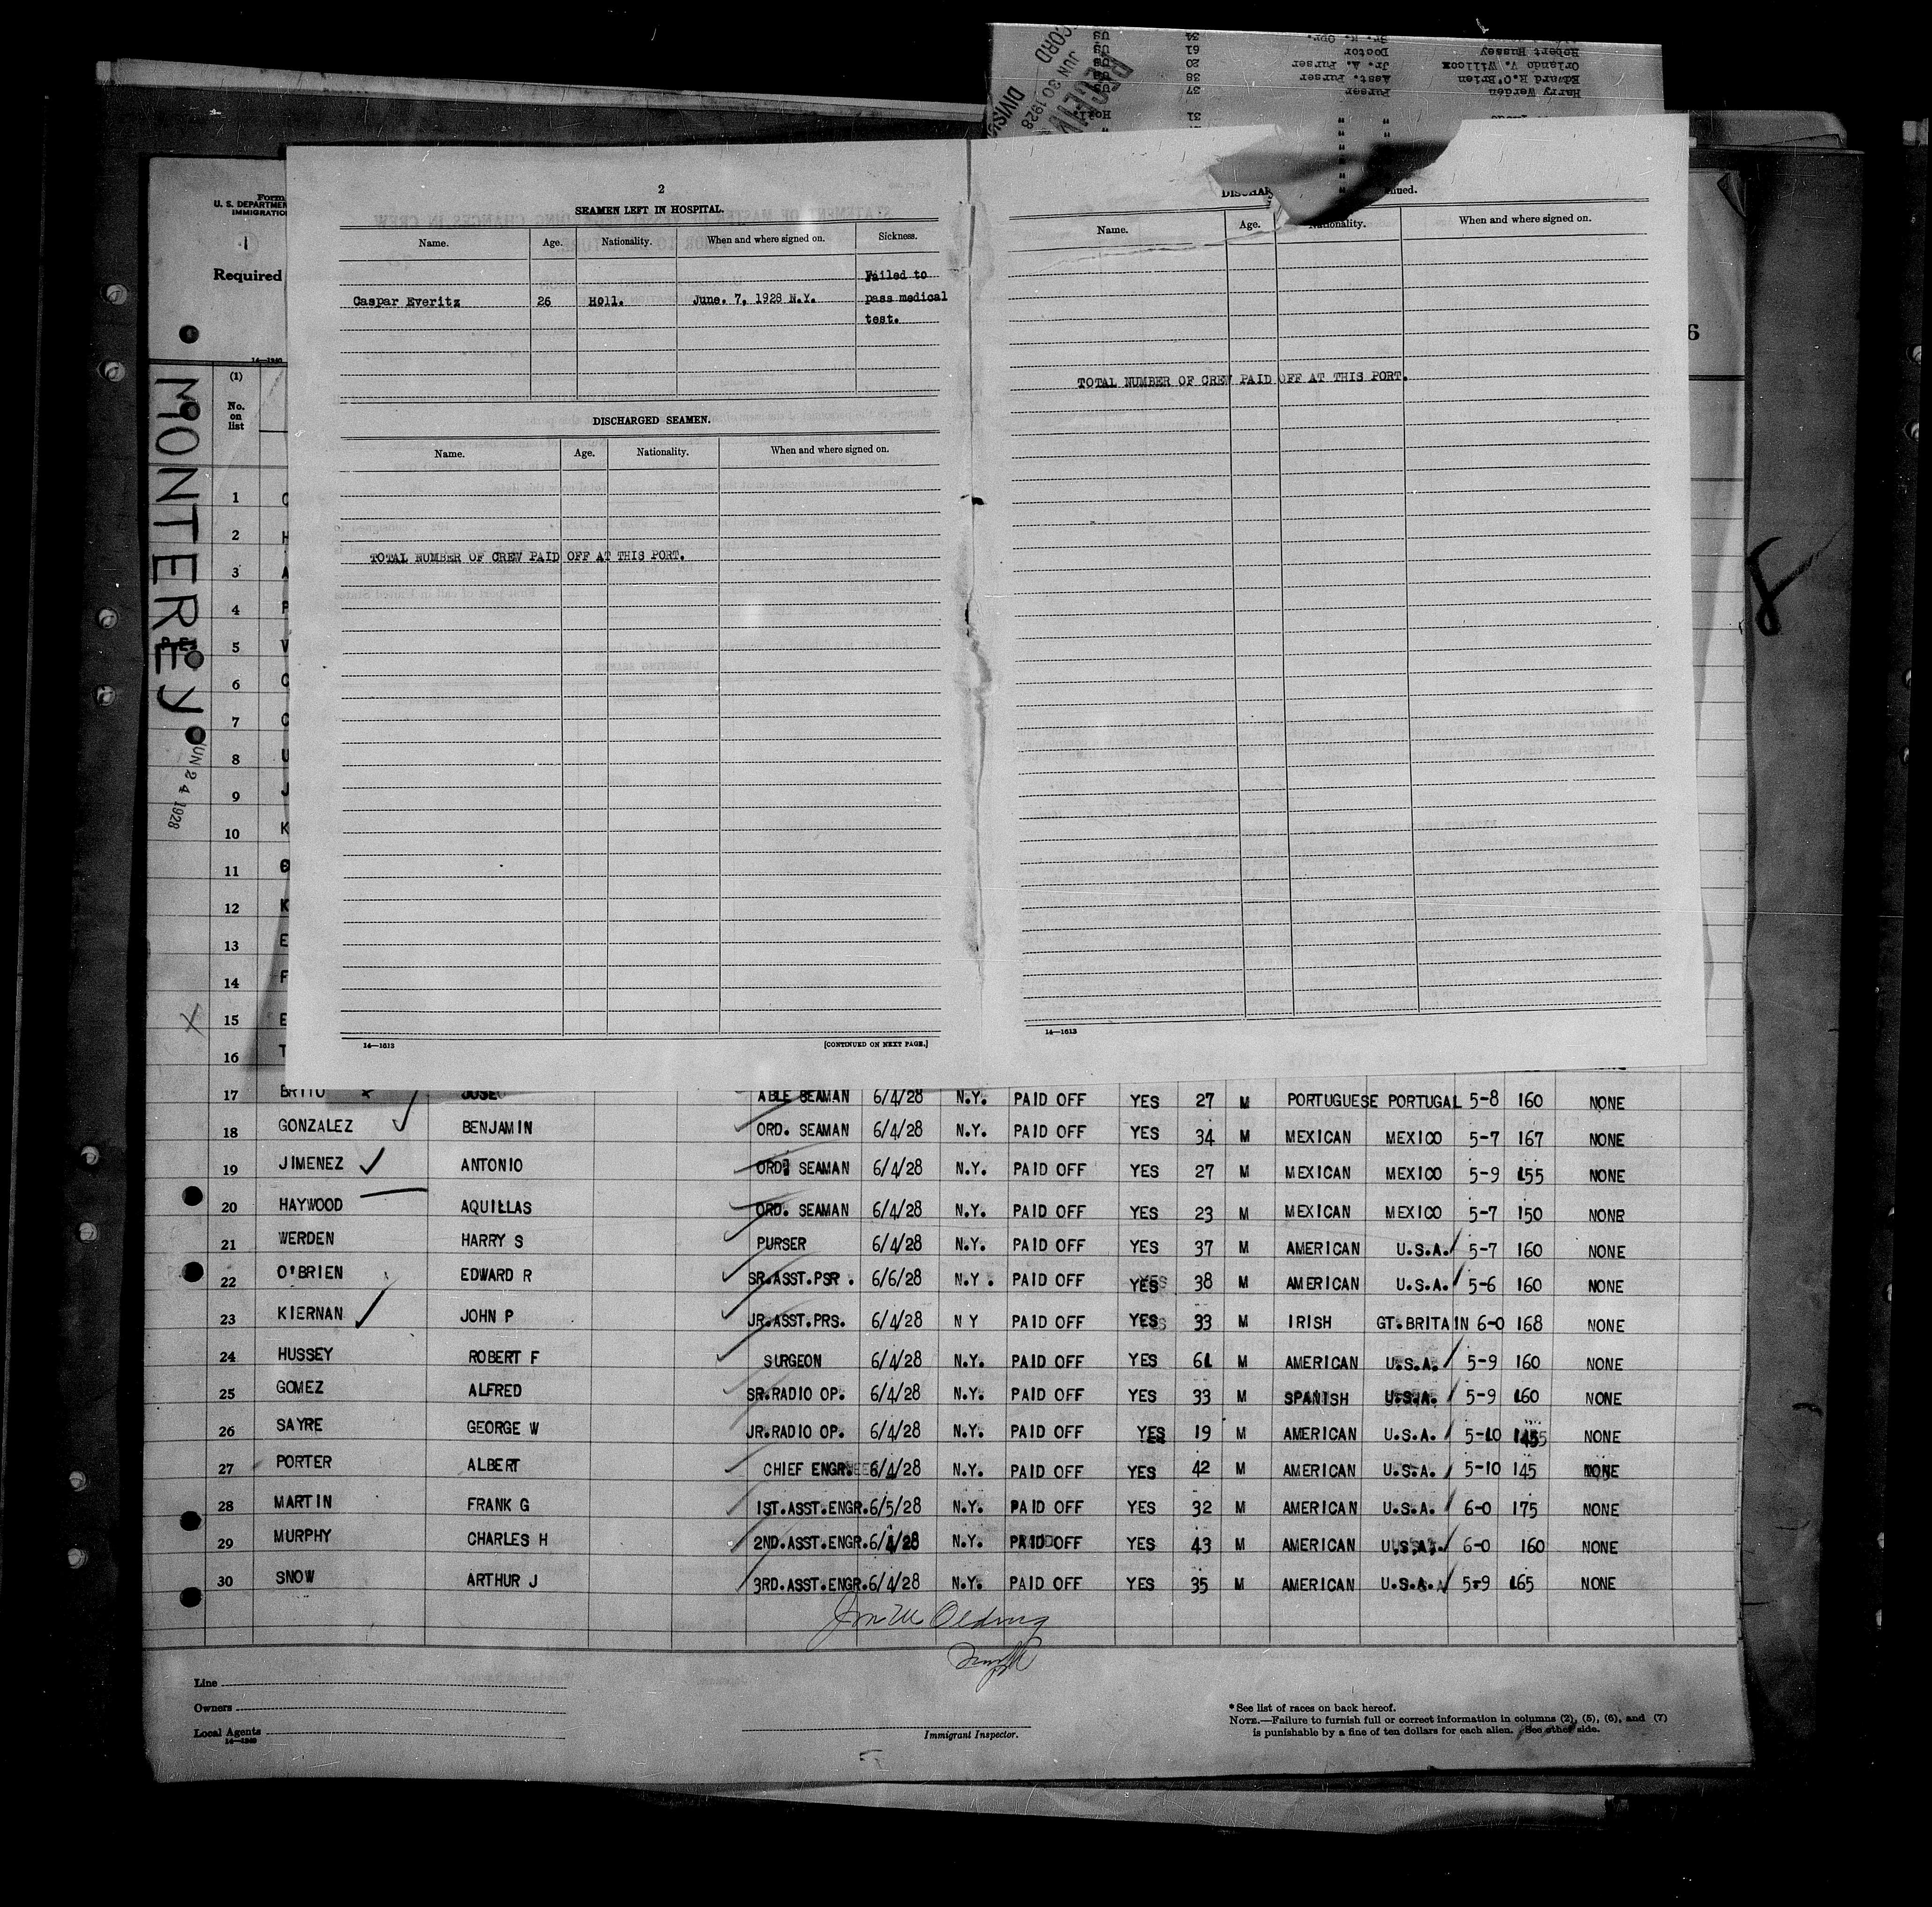 Sr. R. Opr. 34 US
Robert Hussey Doctor 61 US
Orlando V. Willcox Jr. A. Purser 20 US
Edward R.O'Brien Asst. Purser 38 US
Harry Werden Purser 37 US
31 Holl.
JUN 30 1928
Form
U. S. DEPARTMEN
IMMIGRATIO
1
Required
14—1240
MONTEREY
JUN 24 1928
(1)
No.
on
list
6
2
SEAMEN LEFT IN HOSPITAL.
Name. Age. Nationality. When and where signed on. Sickness.
Failed to
Caspar Everitz 26 Holl. June. 7, 1928 N.Y. pass medical
test.
DISCHARGED SEAMEN.
Name. Age. Nationality. When and where signed on.
TOTAL NUMBER OF CREW PAID OFF AT THIS PORT.
14—1613 [CONTINUED ON NEXT PAGE.]
Name. Age. Nationality. When and where signed on.
TOTAL NUMBER OF CREW PAID OFF AT THIS PORT.
14—1613
1
2 H
3 A
4
5 V
6
7
8 U
9 J
10 K
11
12 K
13 E
14 F
15 E
16 T
17 BRITO JOSE ABLE SEAMAN 6/4/28 N.Y. PAID OFF YES 27 M PORTUGUESE PORTUGAL 5-8 160 NONE
18 GONZALEZ BENJAMIN ORD. SEAMAN 6/4/28 N.Y. PAID OFF YES 34 M MEXICAN MEXICO 5-7 167 NONE
19 JIMENEZ ANTONIO ORD. SEAMAN 6/4/28 N.Y. PAID OFF YES 27 M MEXICAN MEXICO 5-9 155 NONE
20 HAYWOOD AQUILLAS ORD. SEAMAN 6/4/28 N.Y. PAID OFF YES 23 M MEXICAN MEXICO 5-7 150 NONR
21 WERDEN HARRY S PURSER 6/4/28 N.Y. PAID OFF YES 37 M AMERICAN U.S.A. 5-7 160 NONE
22 O'BRIEN EDWARD R SR.ASST.PSR. 6/6/28 N.Y. PAID OFF YES 38 M AMERICAN U.S.A. 5-6 160 NONE
23 KIERNAN JOHN P JR.ASST.PRS. 6/4/28 N Y PAID OFF YES 33 M IRISH GT.BRITAIN 6-0 168 NONE
24 HUSSEY ROBERT F SURGEON 6/4/28 N.Y. PAID OFF YES 61 M AMERICAN U.S.A. 5-9 160 NONE
25 GOMEZ ALFRED SR.RADIO OP. 6/4/28 N.Y. PAID OFF YES 33 M SPANISH U.S.A. 5-9 160 NONE
26 SAYRE GEORGE W JR.RADIO OP. 6/4/28 N.Y. PAID OFF YES 19 M AMERICAN U.S.A. 5-10 145 NONE
27 PORTER ALBERT CHIEF ENGR. 6/4/28 N.Y. PAID OFF YES 42 M AMERICAN U.S.A. 5-10 145 NONE
28 MARTIN FRANK G 1ST.ASST.ENGR. 6/5/28 N.Y. PAID OFF YES 32 M AMERICAN U.S.A. 6-0 175 NONE
29 MURPHY CHARLES H 2ND.ASST.ENGR. 6/4/28 N.Y. PAID OFF YES 43 M AMERICAN U.S.A. 6-0 160 NONE
30 SNOW ARTHUR J 3RD.ASST.ENGR. 6/4/28 N.Y. PAID OFF YES 35 M AMERICAN U.S.A. 5-9 165 NONE
Line
Owners
Local Agents
14—1240
Immigrant Inspector.
* See list of races on back hereof.
NOTE.—Failure to furnish full or correct information in columns (2), (5), (6), and (7)
is punishable by a fine of ten dollars for each alien. See other side.